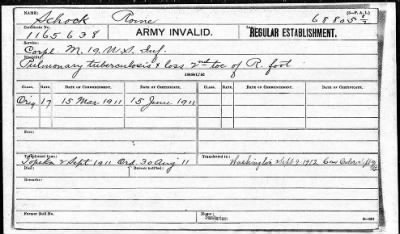 Schock Rome 68805½
Certificate No. (3-P.A.1.)
1165638 ARMY INVALID. REGULAR ESTABLISHMENT.
Service:
Corpl. M. 19. U.S. Inf.
Disability:
Pulmonary tuberculosis & loss 2nd toe of R. foot
CLASS. RATE. DATE OF COMMENCEMENT. DATE OF CERTIFICATE. CLASS. RATE. DATE OF COMMENCEMENT. DATE OF CERTIFICATE.
Orig 17 15 Mar 1911 15 June 1911
Topeka 2 Sept 1911 Ord. 30 Aug 11 Washington Sept 9-1912
Remarks:
Former Roll No.